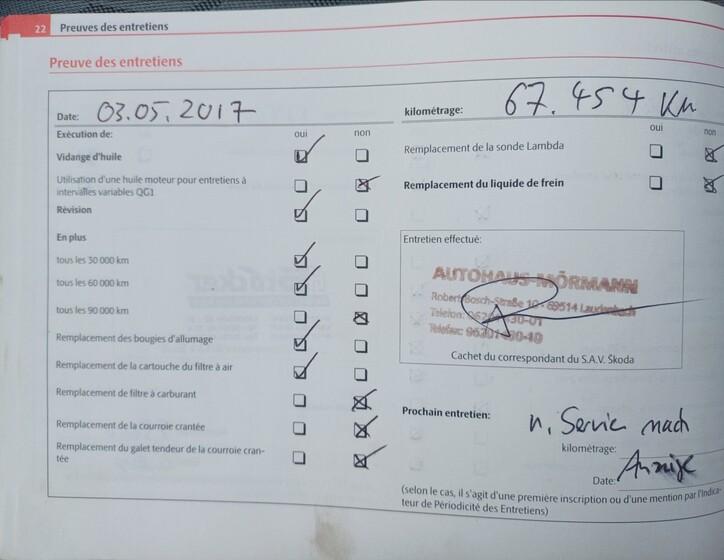 22 Preuves des entretiens
Preuve des entretiens
Date: 03.05.2017
Exécution de: oui non
Vidange d'huile
Utilisation d'une huile moteur pour entretiens à
intervalles variables QG1
Révision
En plus
tous les 30 000 km
tous les 60 000 km
tous les 90 000 km
Remplacement des bougies d'allumage
Remplacement de la cartouche du filtre à air
Remplacement de filtre à carburant
Remplacement de la courroie crantée
Remplacement du galet tendeur de la courroie cran-
tée
kilométrage: 67.454 Km
oui non
Remplacement de la sonde Lambda
Remplacement du liquide de frein
Entretien effectué:
AUTOHAUS MÖRMANN
Robert-Bosch-Straße 10 - 69514 Laudenbach
Telefon:
Telefax:
Cachet du correspondant du S.A.V. Škoda
Prochain entretien: n. Service nach
kilométrage:
Date: Anzeige
(selon le cas, il s'agit d'une première inscription ou d'une mention par l'Indica-
teur de Périodicité des Entretiens)